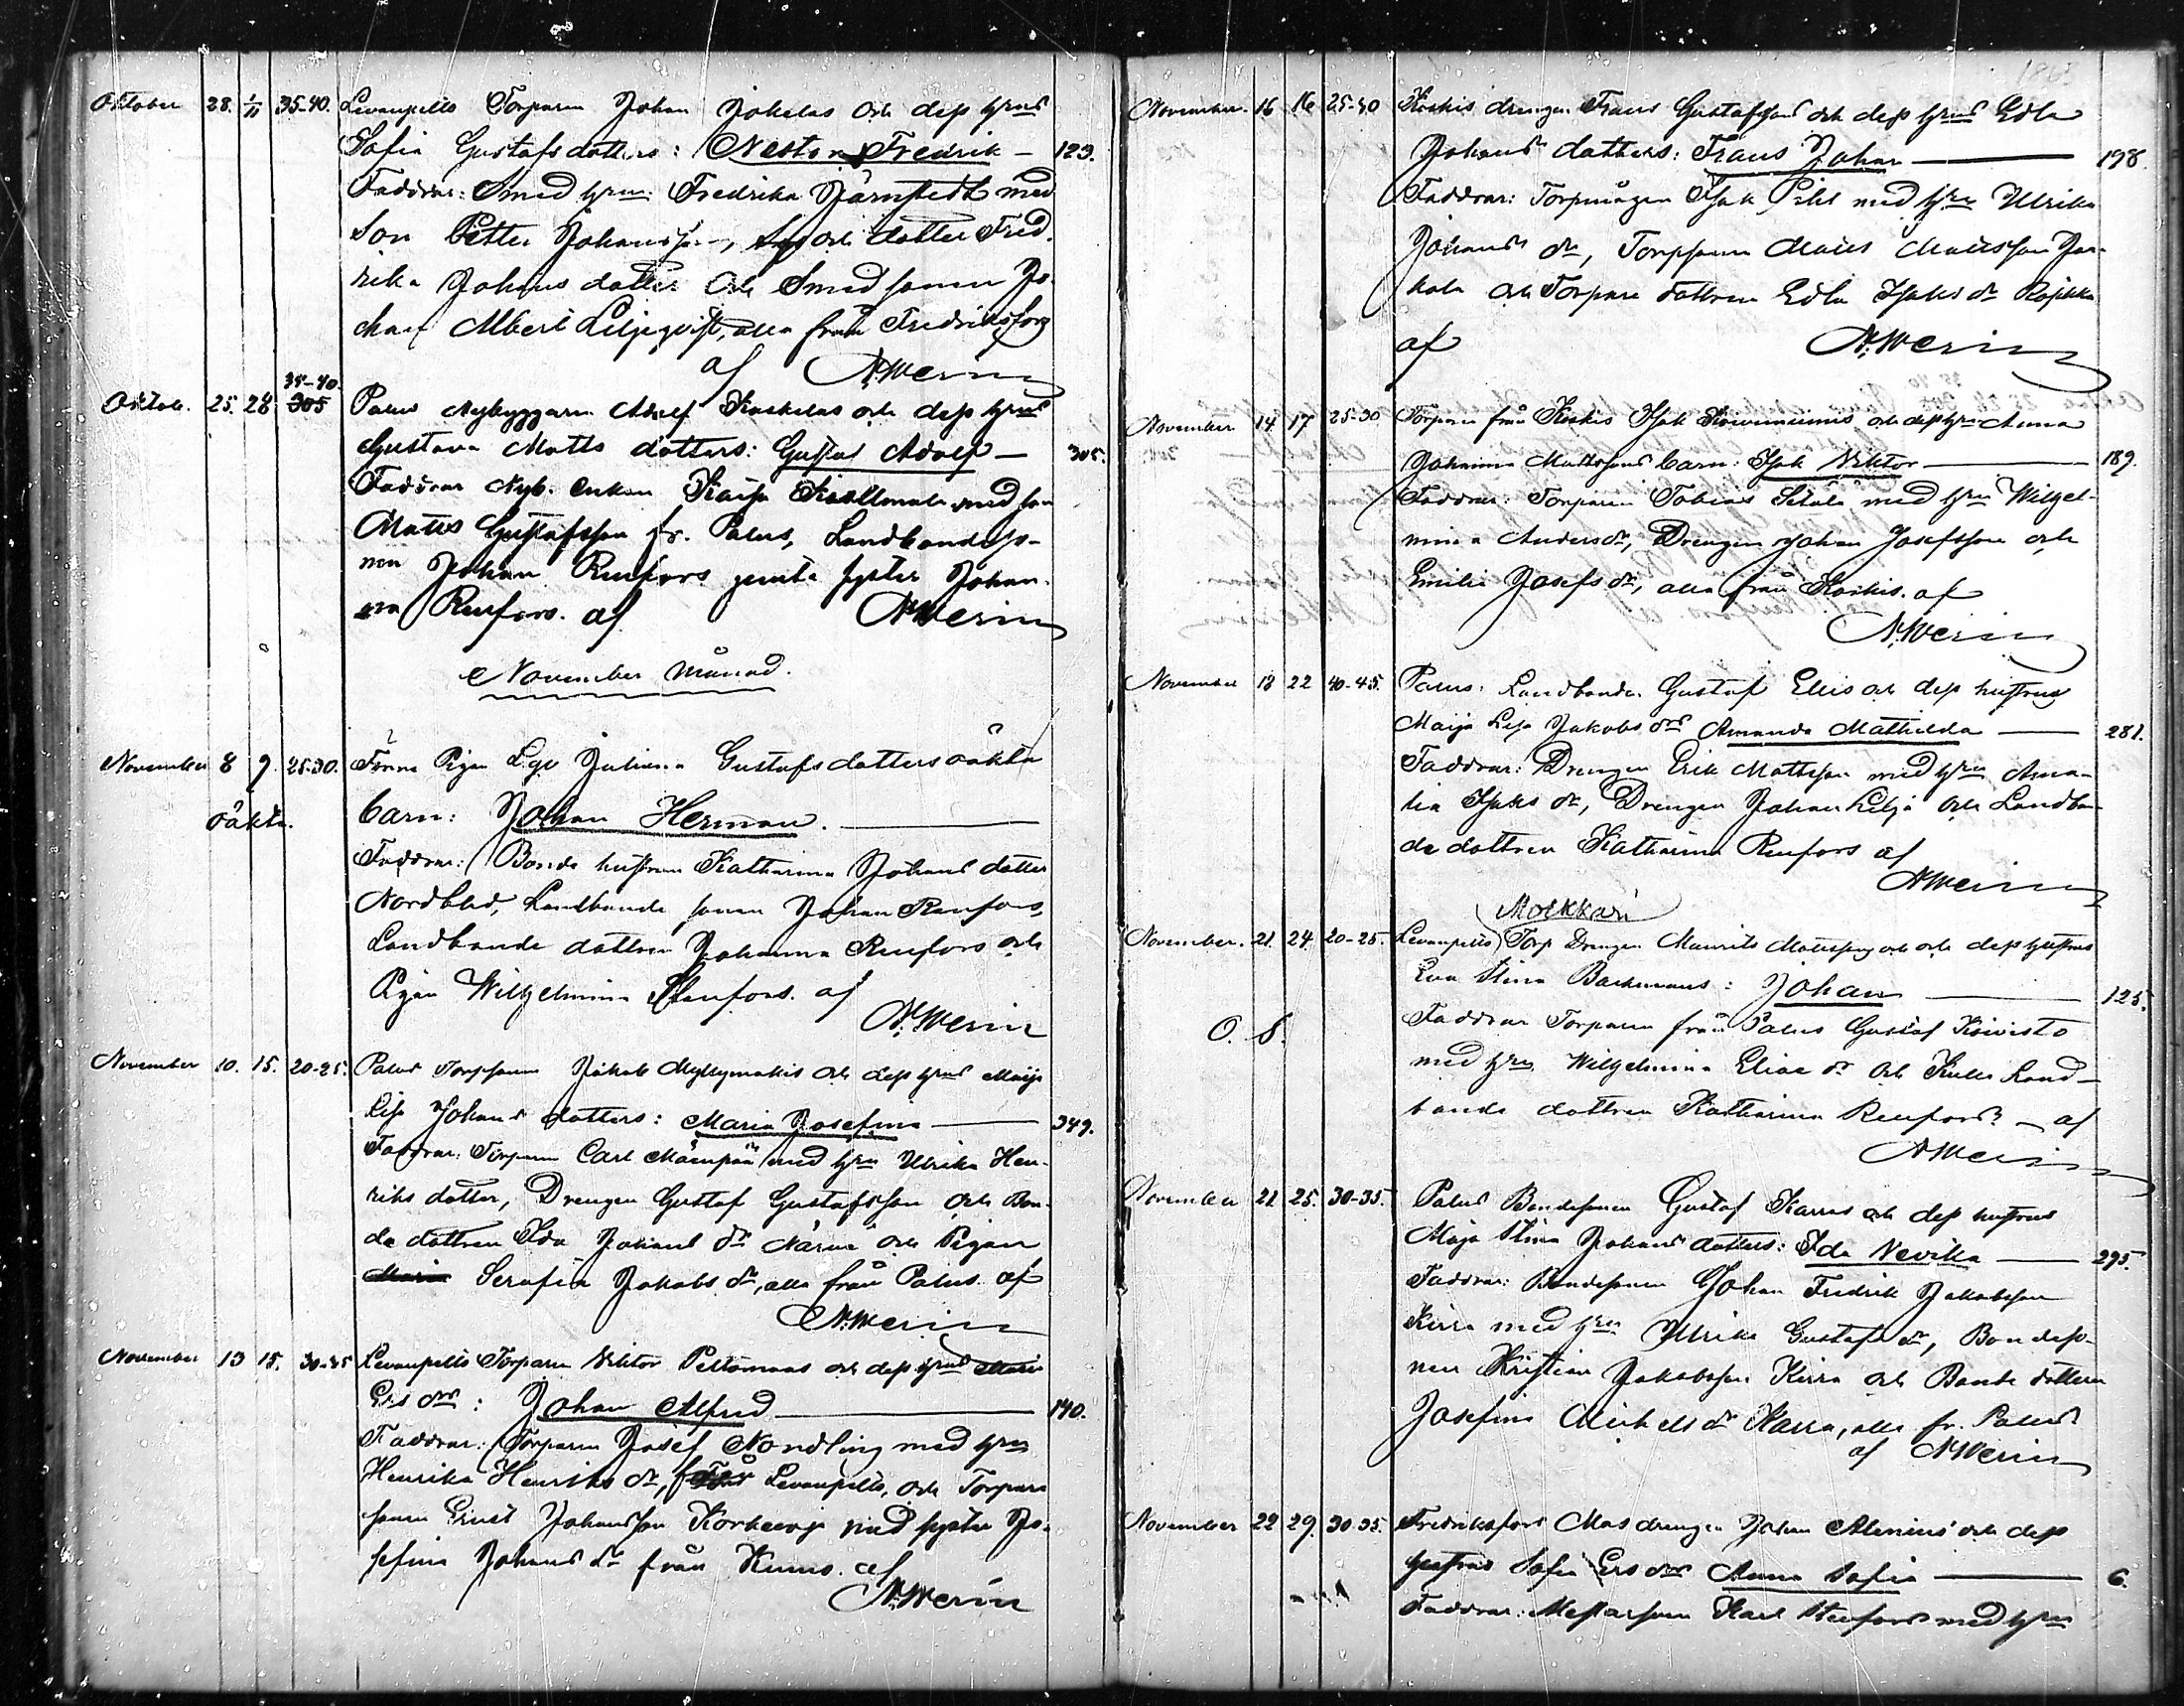 Oktober 28. 1/11 35-40. Levanpelto Torparen Johan Jokelas och dess hrus
Sofia Gustafsdotters: Nestor Fredrik — 123.
Faddrar: Smed hrn: Fredrika Järnstedt med
Son Petter Johansson, och dotter Fred
rika Johans dotter och Smedsonen Jo
han Albert Liljeqvist, alla från Fredriksfors
af N.Werin
35-40.
Oktob. 25. 28 305 Palus Nybyggaren Adolf Koskelas och dess hrus
Gustava Matts dotters: Gustaf Adolf — 305.
Faddrar Nyb. enkan Kaisa med son
Matts Gustafsson fr. Palus, Landbondeso-
nen Johan Renfors jemte syster Johan-
na Renfors. af N.Werin
November månad.
November 8 9. 25-30. Pigan Juliana Gustafsdotters oäkta
oäkta. barn: Johan Herman. —
Faddrar: Bonde hustrun Katharina Johans dotter
Nordblad, Landbonde sonen Johan Renfors,
Landbonde dottren Johanna Renfors och
Pigan Wilhelmina Stenfors. af
N.Werin
November 10. 15. 20-25. Palus Torpsonen Jakob Myllymäkis och dess hrus Maija
Lisa Johans dotters: Maria Josefina — 349.
Faddrar: Torparen Carl Mäenpää med hru Ulrika Hen-
riks dotter, Drengen Gustaf Gustafsson och Bon-
de dottren Ida Johans dr Närvä och Pigan
Maria Serafia Jakobs dr, alla från Palus. af
N.Werin
November 13 15. 30-35 Levanpelto Torparen Viktor Peltomaas och dess hrus Maria
Ers drs: Johan Alfred — 140.
Faddrar: Torparen Josef Nordling med hru
Henrika Henriks dr, från Levanpelto, och Torpare
sonen Ernst Johansson med syster Jo-
sefina Johans dr från Kums. af
N.Werin
November 16 16 25-30 Koskis drengen Frans Gustafssons och dess hrus Edla
Johans dotters: Frans Johan — 198.
Faddrar: Torpmågen Isak Pihl med hru Ulrika
Johans dr, Torpsonen Matts Mattsson Jo-
kela och Torpare dottren Edla Isaks dr
af N.Werin
November 14 17 25-30 Torparen från Koskis Isak Koivuniemis och dess hru Anna
Johanna Mattssons barn: Isak Viktor — 189.
Faddrar: Torparen Tobias Sitala med hru Wilhel-
mina Anders dr, Drengen Johan Josefsson och
Emilia Josefs dr, alla från Koskis. af
N.Werin
November 18 22 40-45. Palus: Landbonden Gustaf Elis och dess hustrus
Maija Lisa Jakobs drs Amanda Mathilda — 281.
Faddrar: Drengen Erik Mattsson med hru Ama-
lia Isaks dr, Drengen Johan Lilja och Landbon
de dottren Katharina Renfors af
N.Werin
Moekkari
November. 21. 24. 20-25. Levanpelto Torp Drengen Maurits Mattsson och dess hustrus
Eva Stina Backmans: Johan — 125.
Faddrar Torparen från Palus Gustaf Koivisto
O. S.
med hru Wilhelmina Elias dr och Land-
bonde dottren Katharina Renfors — af
N.Werin
November 21 25. 30-35. Palus Bondesonen Gustaf Karras och dess hustrus
Maja Stina Johans dotters: Ida Nevika — 295.
Faddrar: Bondesonen Johan Fredrik Jakobsson
Kirra med hru Ulrika Gustafs dr, Bondeso-
nen Kristian Jakobsson Kirra och Bonde dottren
Josefina Michels dr Karra, alla fr. Palus
af N.Werin
November 22 29. 30-35. Fredriksfors Masdrengen Johan Alenius och dess
hustrus Sofia Ers drs Anna Sofia — 6.
Faddrar: Karl Stenfors med hru